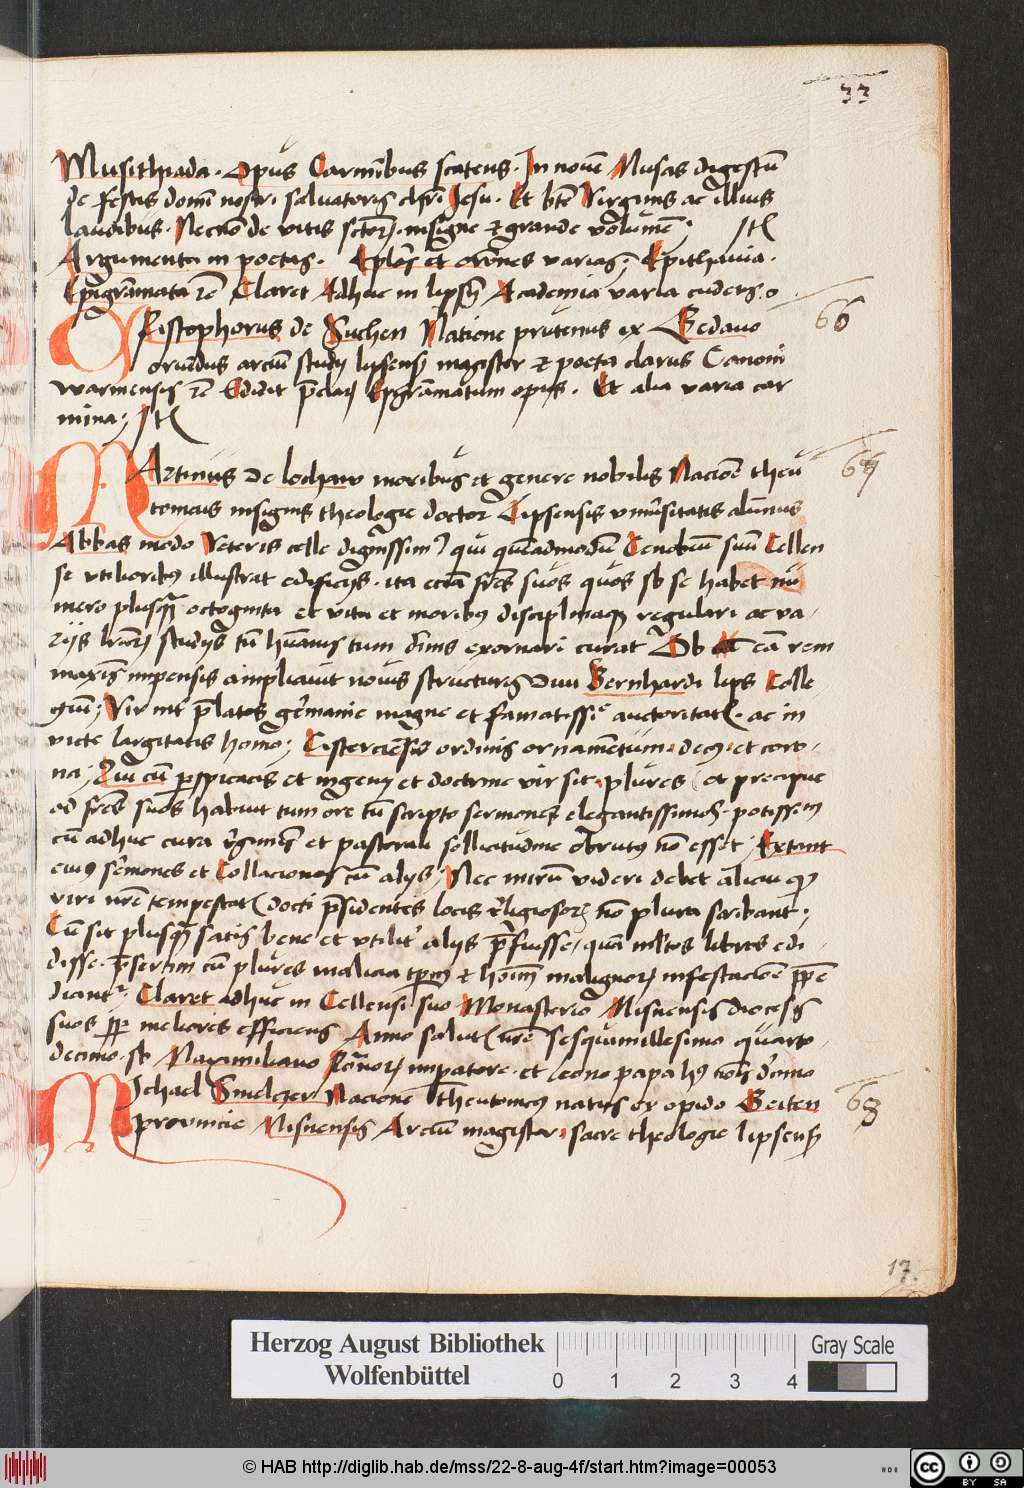 33
Musithiada. Opus Carminibus scatens. In nouē Musas digestū
de festis domī nostri saluatoris chrī Jesu. Et btē Virginis ac illius
laudibus. Necnō de vitis sctorꝫ. insigne et grande volumē;
Argumenta in poetas. Eplas et orōnes varias; Epithauia.
Epigrāmata rc̄ Claret Adhuc in lipsn̄ Academia varia cudens.
66
Ristophorus de Suchen Natione prutenus ex Gedano
oriundus arciū studij lipsensꝫ magister et poeta clarus Canonī
warmensis rc̄ Edidit p̄clarꝫ Epigrāmatum opus. Et alia varia car
mina;
67
MArtinus de lochaw moribus et genere nobilis Nacionē theu
tonicus insignis theologie doctor Lipsensis vniūsitatis alūnus
Abbas modo Veteris celle dignissim9 qui quēadmodū Cenobiū suū Cellen
se vtilioribus illustrat edificijs. ita eciā frēs suos quos sb se habet nu
mero plusquā octoginta et vita et moribus disciplinaqꝫ regulari ac va-
rijs lrarꝫ studijs tū hūanis tum diīs exornari curat Ob eā rem
maxīs impensis ampliauit nouis structuris Diui Bernhardi lips Colle
giū; Vir int p̄latos germanie magne et famatissiē auctoritatꝭ. ac in
victe largitatis homo; Cisterciēsis ordinis ornamētum. decus. et coro-
na; Qui cū p̄spicacis et ingenij et doctrine vir sit. plures et precipue
ad frēs suos habuit tum ore tū scripto sermones elegantissimos. potissim
cū adhuc cura rgimīs et pastorali sollicitudine obrutus nō esset; Extant
eius sermones et Collaciones cū alijs; Nec mirū videri debet alicui qꝫ
viri nrē tempestatꝭ docti p̄sidentes locis religiosorꝫ nō plura scribant;
Cū sit plusquā satis bene et vtilit alijs p̄fuisse, quā mltos libros edi-
disse. p̄sertim cū plures malicia tpm et hoīm malignorꝫ infestacionē
diant. Claret adhuc in Cellensi suo Monasterio Misnensis diocesis
suos meliores efficiens Anno salutꝭ nrē sesquimillesimo quarto-
decimo. sb Maximiliano Rōmorꝫ impatore. et leone papa
68
MIchael Smelczer Nacione Theutonicus natus ex opido Geiten
prouincie Misnensis Arciū magister. sacre theologie lipsensꝫ
17.
Herzog August Bibliothek
Wolfenbüttel
0 1 2 3 4
Gray Scale
© HAB http://diglib.hab.de/mss/22-8-aug-4f/start.htm?image=00053
HAB
cc BY SA